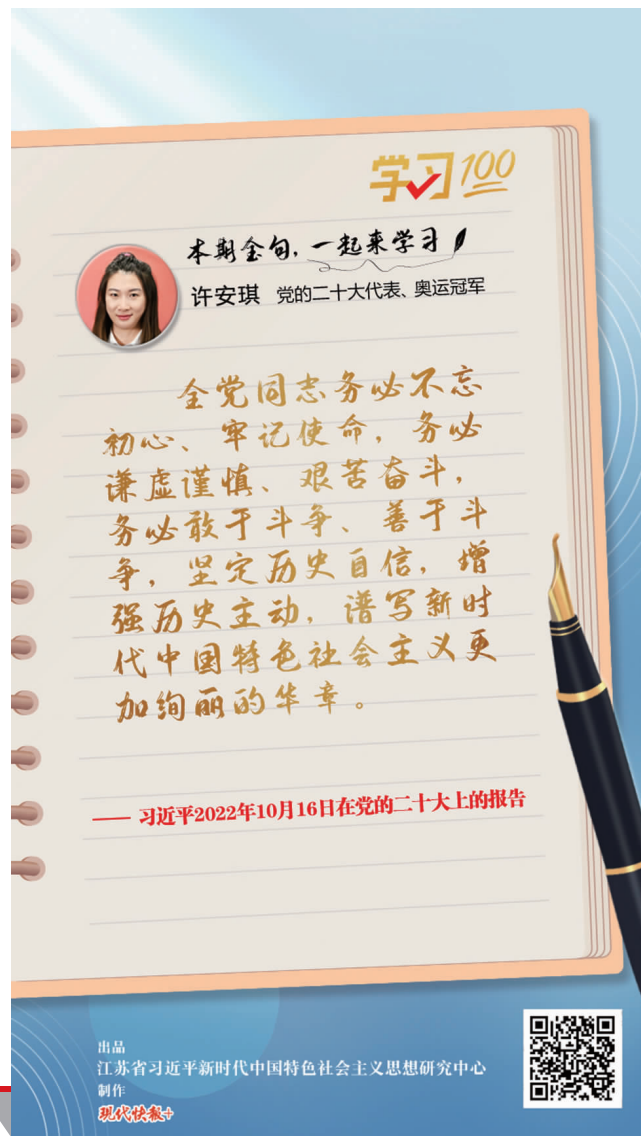 学习100
本期金句，一起来学习
许安琪 党的二十大代表、奥运冠军
全党同志务必不忘
初心、牢记使命，务必
谦虚谨慎、艰苦奋斗，
务必敢于斗争、善于斗
争，坚定历史自信，增
强历史主动，谱写新时
代中国特色社会主义更
加绚丽的华章。
—— 习近平2022年10月16日在党的二十大上的报告
出品
江苏省习近平新时代中国特色社会主义思想研究中心
制作
现代快报+